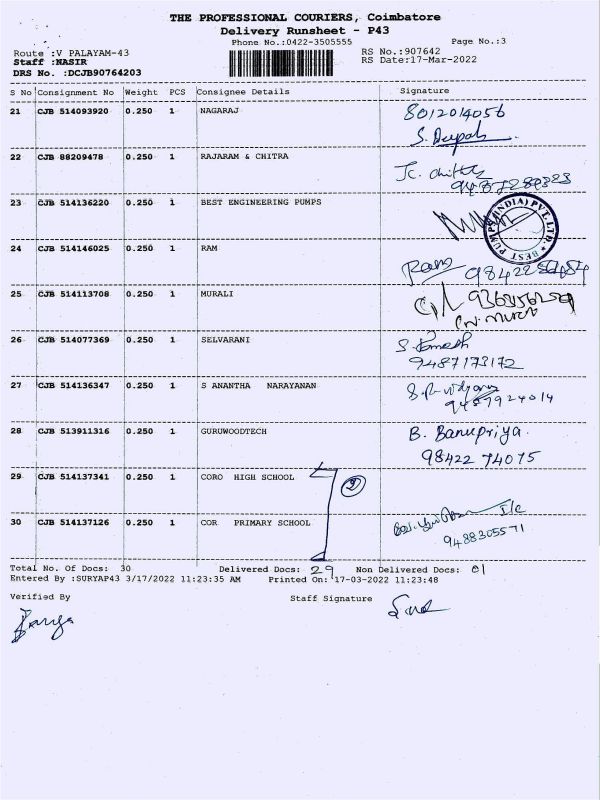 THE PROFESSIONAL COURIERS, Coimbatore
Delivery Runsheet - P43
Phone No.:0422-3505555 Page No.:3
Route :V PALAYAM-43 RS No.:907642
Staff :NASIR RS Date:17-Mar-2022
DRS No. :DCJB90764203
S No Consignment No Weight PCS Consignee Details Signature
21 CJB 514093920 0.250 1 NAGARAJ 8012014056
S. Deepak
22 CJB 88209478 0.250 1 RAJARAM & CHITRA
23 CJB 514136220 0.250 1 BEST ENGINEERING PUMPS
BEST PUMPS (INDIA) PVT. LTD.
24 CJB 514146025 0.250 1 RAM
Ram
25 CJB 514113708 0.250 1 MURALI
26 CJB 514077369 0.250 1 SELVARANI
9487173172
27 CJB 514136347 0.250 1 S ANANTHA NARAYANAN
28 CJB 513911316 0.250 1 GURUWOODTECH B. Banupriya.
98422 74075
29 CJB 514137341 0.250 1 CORO HIGH SCHOOL 2
30 CJB 514137126 0.250 1 COR PRIMARY SCHOOL I/c
9488305571
Total No. Of Docs: 30 Delivered Docs: 29 Non Delivered Docs: 01
Entered By :SURYAP43 3/17/2022 11:23:35 AM Printed On: 17-03-2022 11:23:48
Verified By Staff Signature